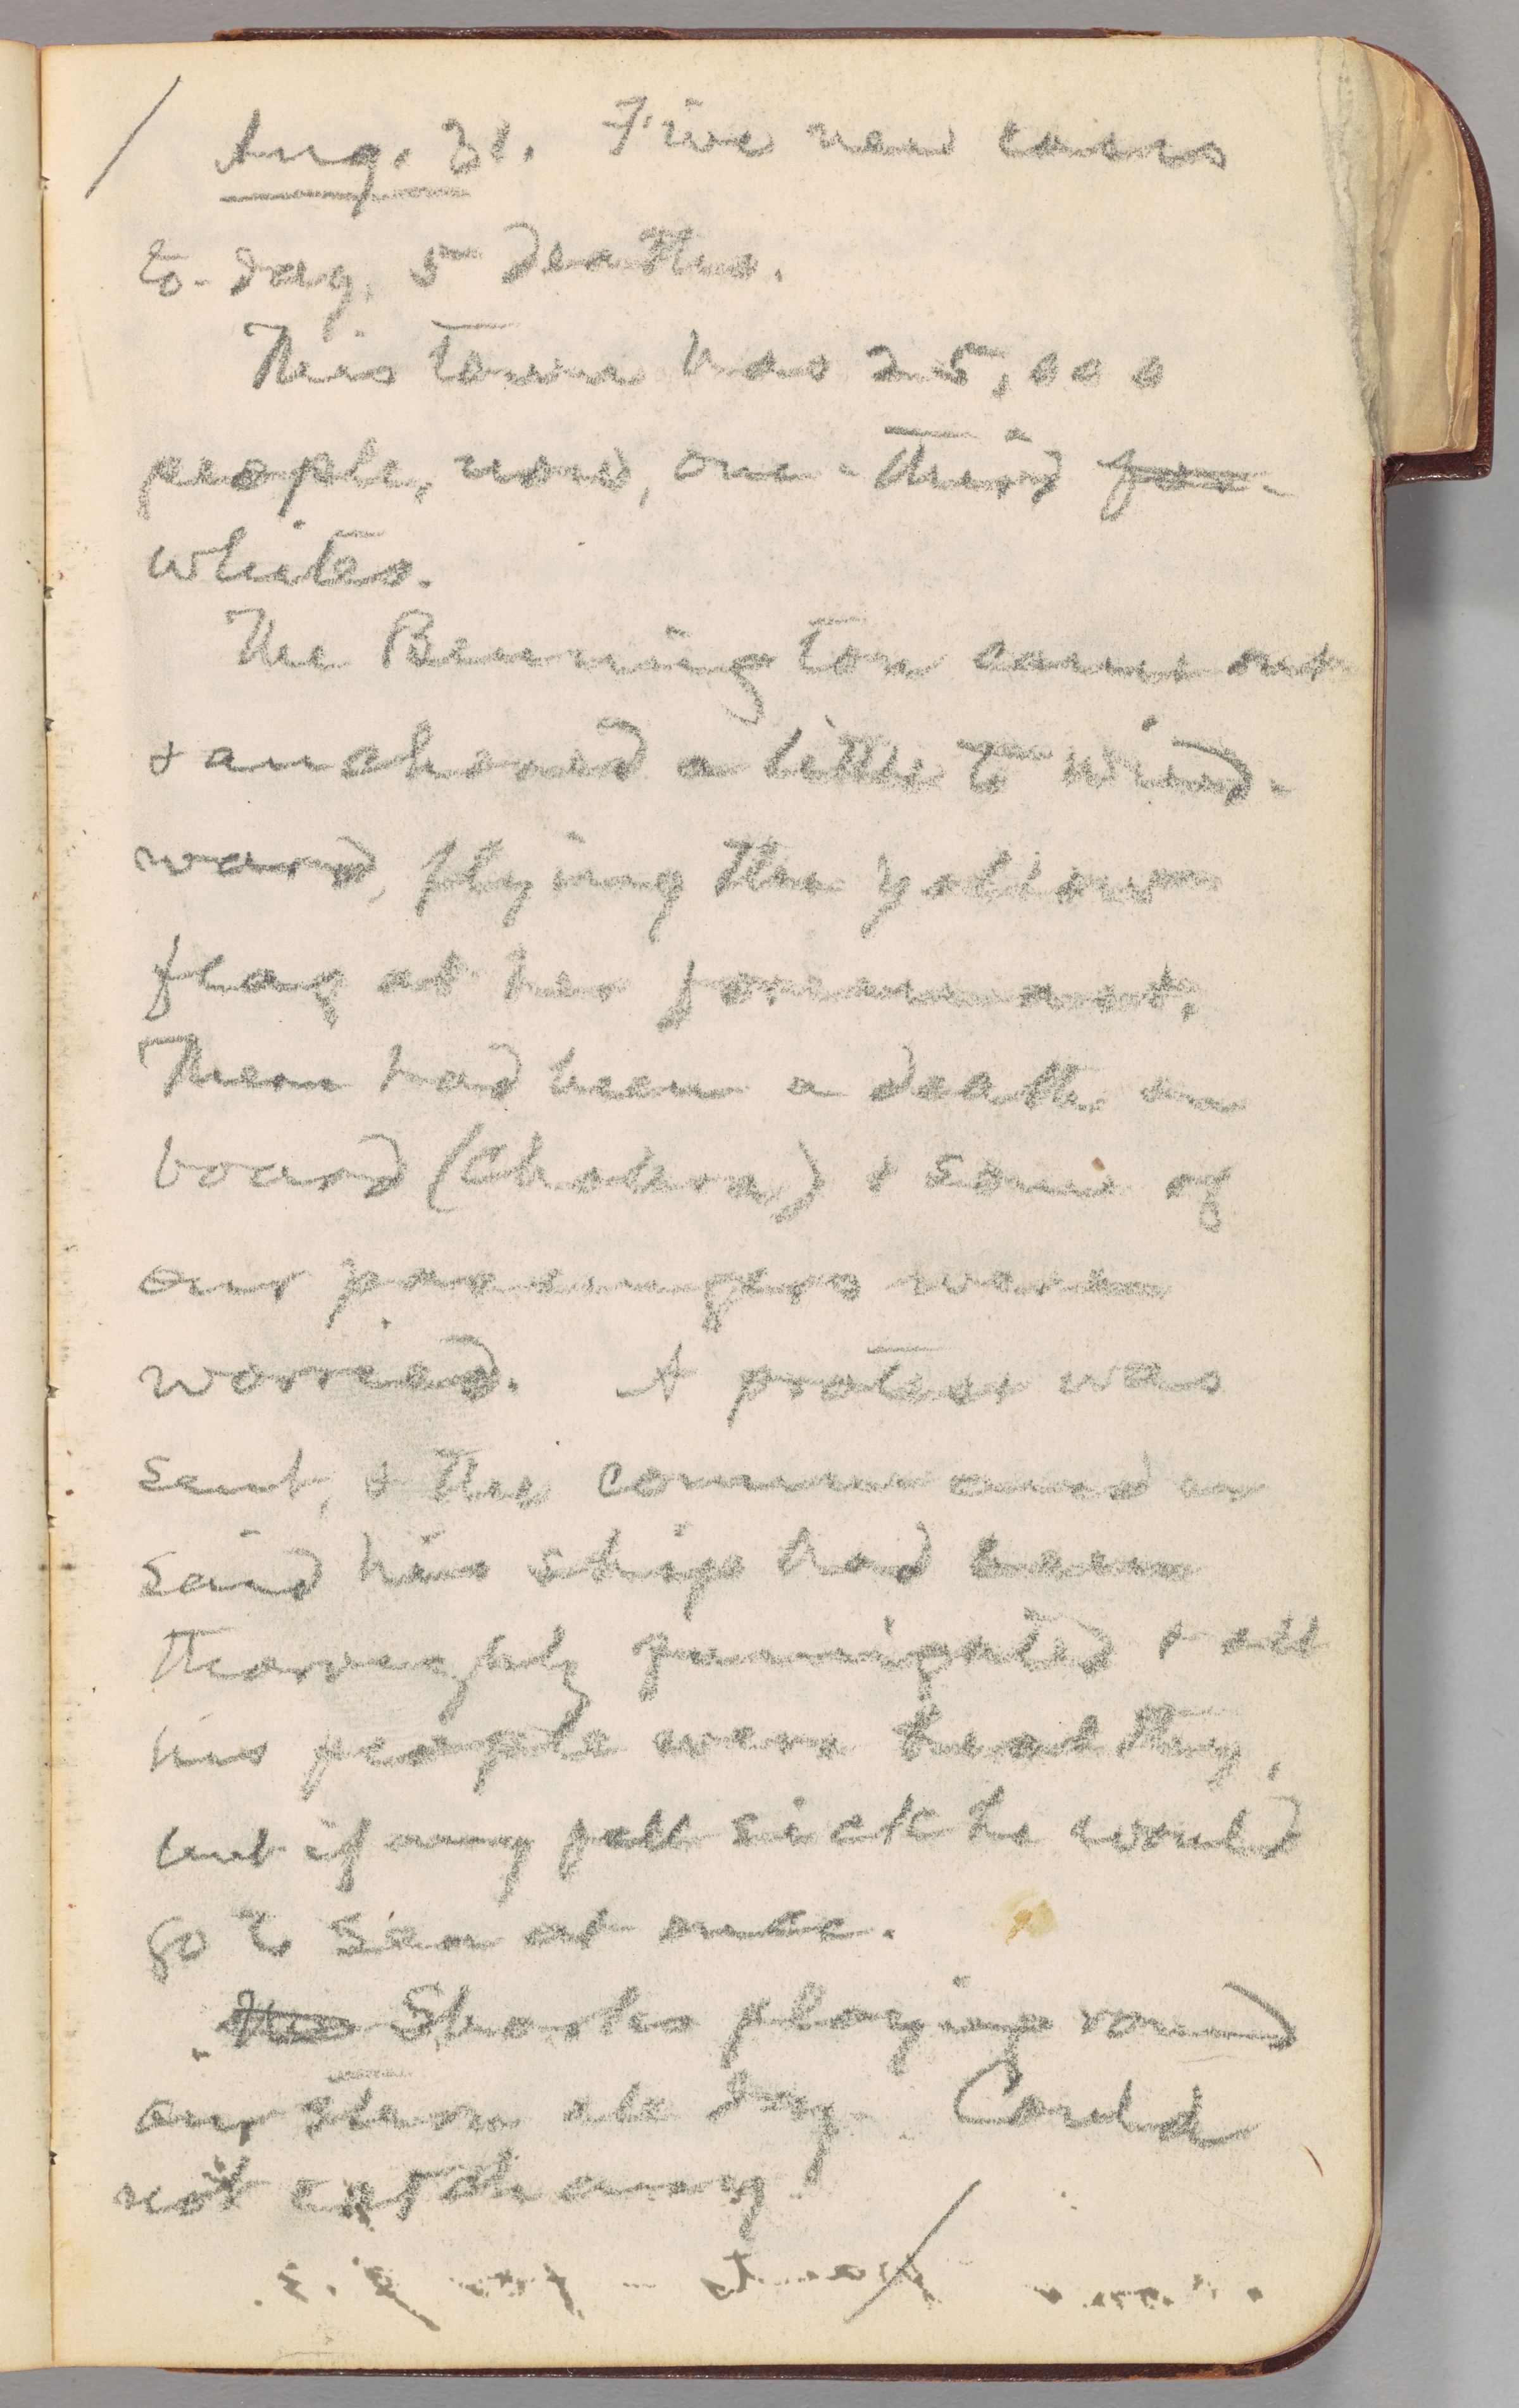 Aug. 31. Five new cases
to-day, 5 deaths.
This town has 25,000
people, now, one-third
whites.
The Bennington came out
& anchored a little to wind-
ward, flying the yellow
flag at her foremast.
There had been a death on
board (cholera) & some of
our passengers were
worried. A protest was
sent, & the commander
said his ship had been
thoroughly fumigated & all
his people were healthy,
but if any fell sick he would
go to sea at once.
The Sharks playing round
our stern all day. Could
not catch any